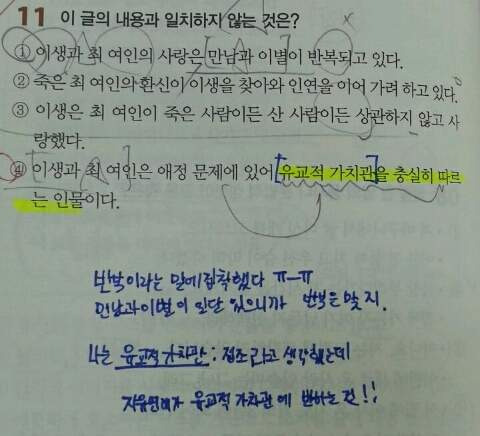 11 이 글의 내용과 일치하지 않는 것은?
① 이생과 최 여인의 사랑은 만남과 이별이 반복되고 있다.
② 죽은 최 여인의 환신이 이생을 찾아와 인연을 이어 가려 하고 있다.
③ 이생은 최 여인이 죽은 사람이든 산 사람이든 상관하지 않고 사
랑했다.
④ 이생과 최 여인은 애정 문제에 있어 유교적 가치관을 충실히 따르
는 인물이다.
반복이라는 말에 집착했다 ㅠㅡㅠ
만남과 이별이 일단 있으니까 반복은 맞지.
나는 유교적 가치관 : 정조라고 생각했는데
자유연애가 유교적 가치관에 반하는 것!!